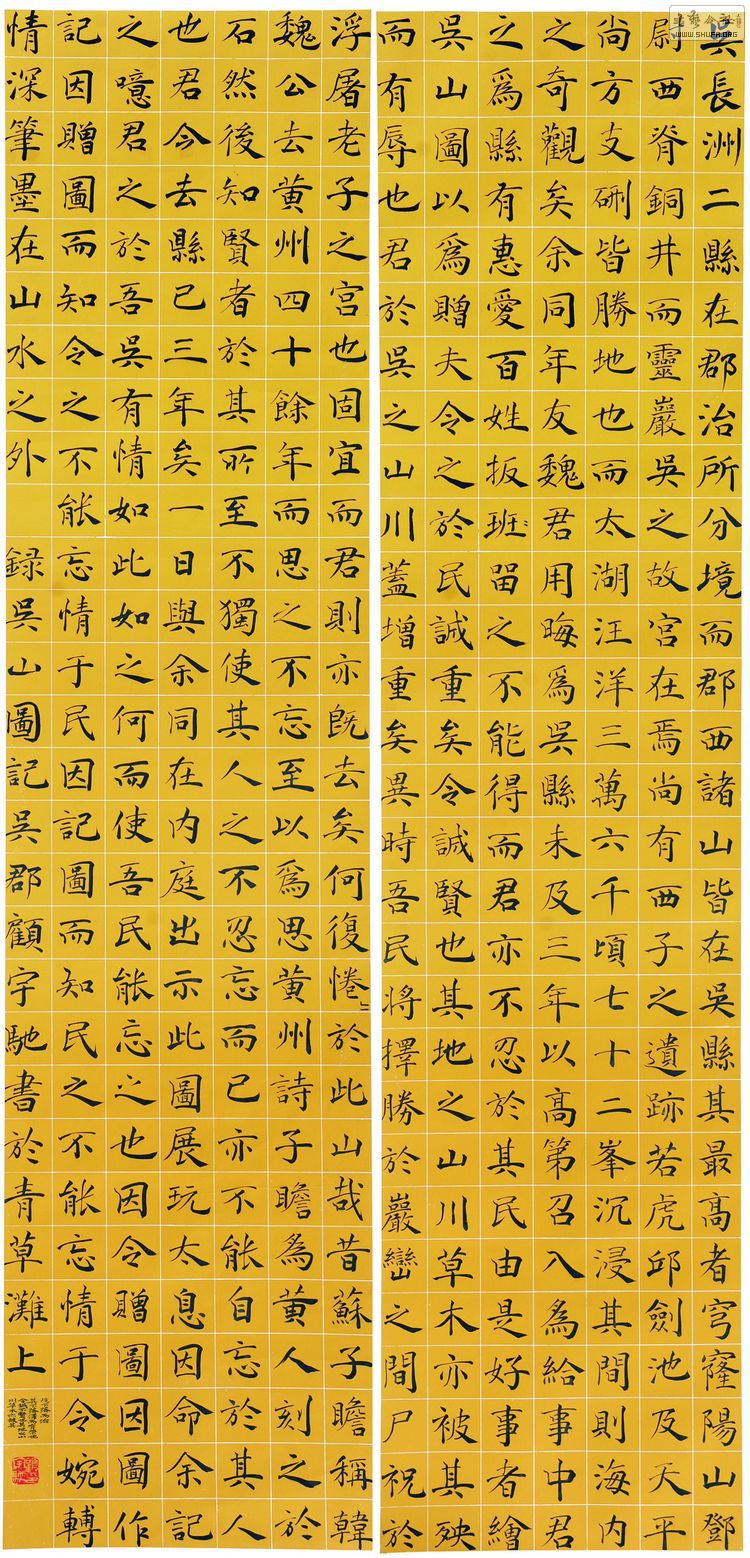 吳長洲二縣在郡治所分境而郡西諸山皆在吳縣其最高者穹窿陽山鄧
尉西脊銅井而靈巖吳之故宮在焉尚有西子之遺跡若虎邱劍池及天平
尚方支硎皆勝地也而太湖汪洋三萬六千頃七十二峯沉浸其間則海內
之奇觀矣余同年友魏君用晦爲吳縣未及三年以高第召入為給事中君
之爲縣有惠愛百姓扳班留之不能得而君亦不忍於其民由是好事者繪
吳山圖以爲贈夫令之於民誠重矣令誠賢也其地之山川草木亦被其殃
而有辱也君於吳之山川蓋增重矣異時吾民將擇勝於巖巒之間尸祝於
浮屠老子之宮也固宜而君則亦既去矣何復惓〻於此山哉昔蘇子瞻稱韓
魏公去黃州四十餘年而思之不忘至以爲思黃州詩子瞻為黃人刻之於
石然後知賢者於其所至不獨使其人之不忍忘而已亦不能自忘於其人
也君今去縣已三年矣一日與余同在內庭出示此圖展玩太息因命余記
之噫君之於吾吳有情如此如之何而使吾民能忘之也因令贈圖因圖作
記因贈圖而知令之不能忘情于民因記圖而知民之不能忘情于令婉轉
情深筆墨在山水之外 錄吳山圖記吳郡顧宇馳書於青草灘上
令誠不賢其地之山
川草木亦被其
WWW.SHUFA.ORG